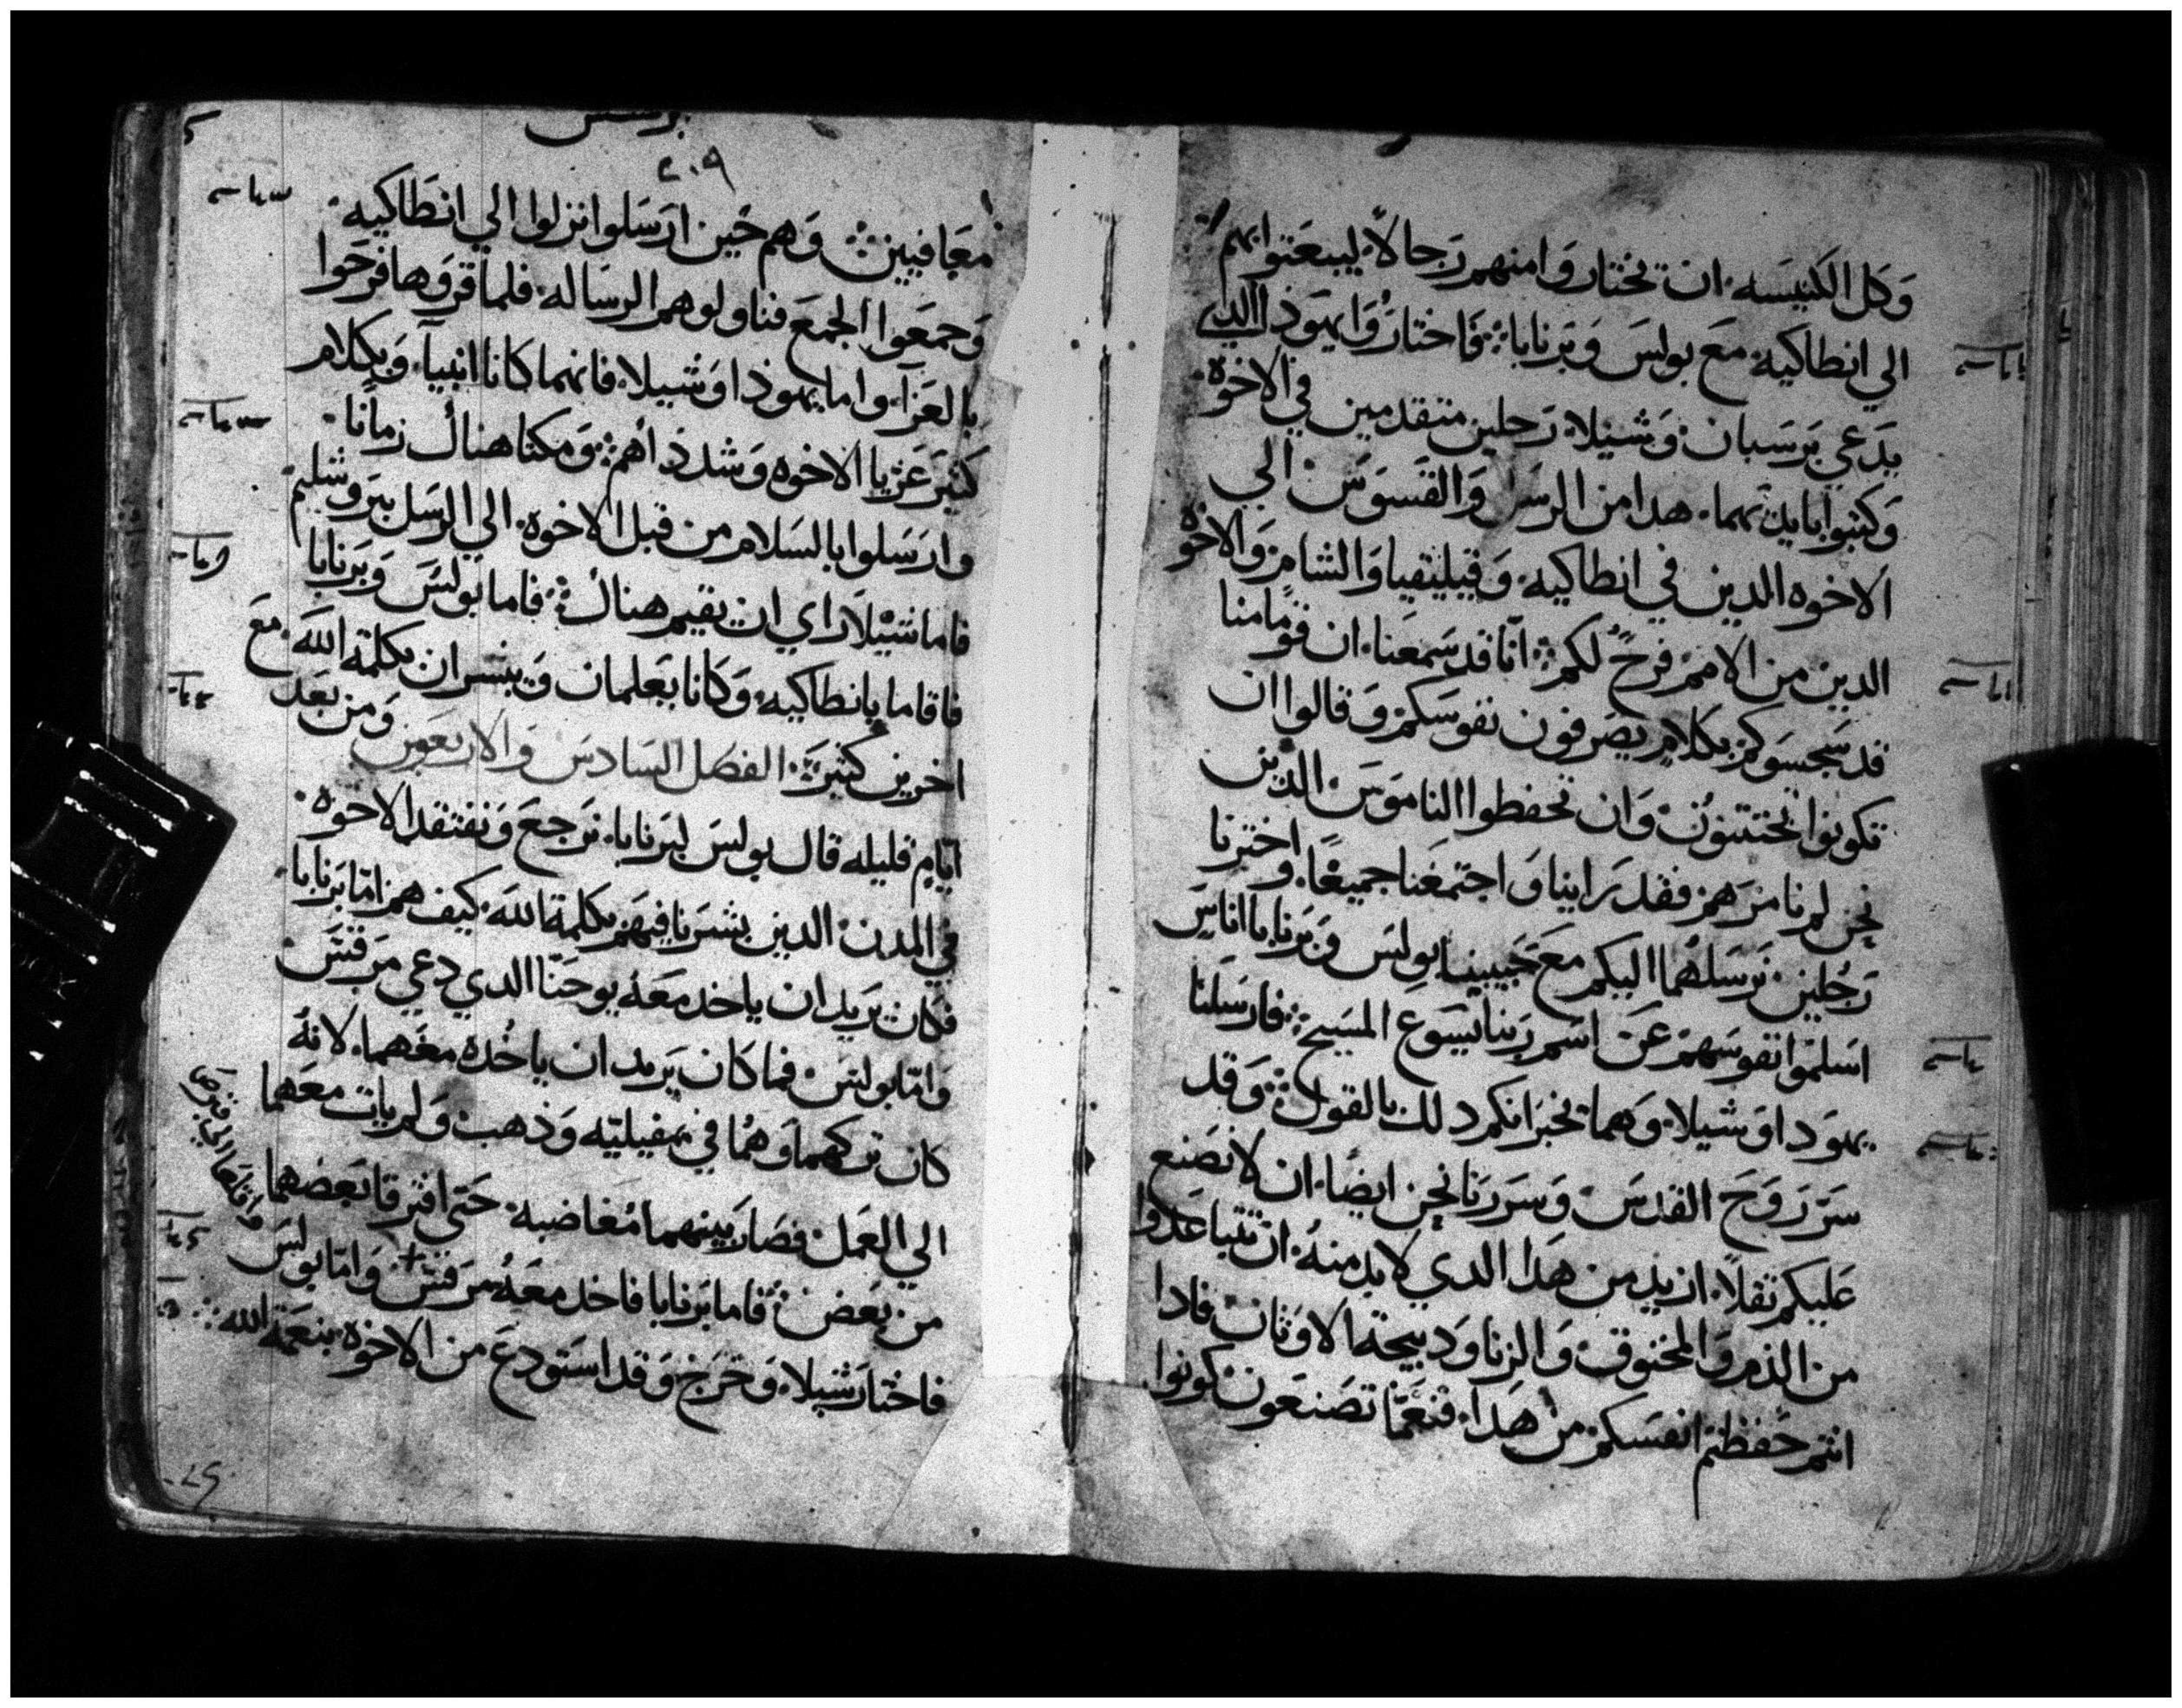 وَكل الكنيسَه، ان تختار وَا منهم رَجالاً، ليبعَتوا بهم
الي انطاكيه، مَع بولسَ وَبَرنابا؛ فَاختارُوَا يهوَذا الدي
يدَعي بَرسَبان، وَشيلا، رَجلين متقدمين في الاخوَه،
وَكتبوا بايديهما، هدا من الرسَل وَالقسوَسَ، الي
الاخوه الدين في انطاكيه، وَقيليقيا وَالشام، وَالاخوه
الدين من الامم، فرحٌ لكم؛ انّا قد سَمعَنا، ان قومًا منا
قد سَجسَوكم بكلام يصَرفون نفوسَكم، وَقالوا ان
تكونوا تختتنوُن، وَان تحفظوا الناموَسَ، الدين
نحن لم نامرَهم، فقد رَاينا وَاجتمعَنا جميعًا، وَاختَرنا
رَجُلين، نرَسَلهُما اليكم مَع حَبيبينا بولسَ وَبَرنابا اناسَ
اسَلمَوا نفوسَهمَ عَن اسَم رَبنا يَسَوع المسَيح؛ فارسَلنا
يهوَدا وَشيلا، وَهما تخبرَانكم دلك بالقول؛ وَقد
سَرَ رَوَحَ القدسَ، وَسَرَرَنا نحن ايضًا، ان لا نصَنع
عَليكم ثقلاً، ازيد من هَدا الدي لا بد منهُ، ان تتباعَدوا
من الدم وَالمخنوق وَالزنا وَدبيحة الاوَثان، فادا
انتم حفظتم انفسَكم من هَدا، فنعَمّا تصَنعَون، كونوا
٢٠٩
معَافيين؛ وَهم حَين ارسَلوا نزلوا الي انطاكيه،
وَجمعَوا الجمعَ فناولوهم الرسَاله، فلما قروَها فرحَوا
بالعَزآ، واما يهوذا وَشيلا، فانهما كانا انبيآ، وَبكلام
كثيرَ عَزيا الاخوه وَشددَاهم؛ وَمكثا هناك زمانًا،
وارَسَلوا بالسَلام من قبل الاخوه، الي الرسَل بيرَوشليم
فاما شيلا رَاي ان يقيم هناك؛ فاما بولسَ وَبَرنابا
فاقاما بانطاكيه، وَكانا يعَلمان وَيبشران بكلمة الله، مَع
اخرين كثيرَة، الفصَل السَادسَ وَالاربعَون وَمن بعَد
ايّام قليله قال بولسَ لبرَنابا، نرَجعَ وَنفتقد الاخوه،
في المدن، الدين بشرَنا فيهَم بكلمة الله، كيف هم، امّا برَنابا،
فكان يرَيد ان ياخد معَهُ يوحَنّا الدي دعي مرَقسَ،
وَامّا بولسَ، فما كان يرَيد ان ياخُده معَهما، لانهُ
كان ترَكهما وَهُما في بمفيليّه وَذهب، وَلم يات معَهما
الي العَمل، فصَارَ بينهما مُغاضبه، حَتي افترقا بعَضهما
من بعَض؛ فاما برَنابا فاخد معَهُ مرَقسَ + وَامّا بولسَ
واقلعَا الي قبرَص
فاختارَ شيلا، وَخرَج وَقد استَودعَ من الاخوه بنعَمة الله؛